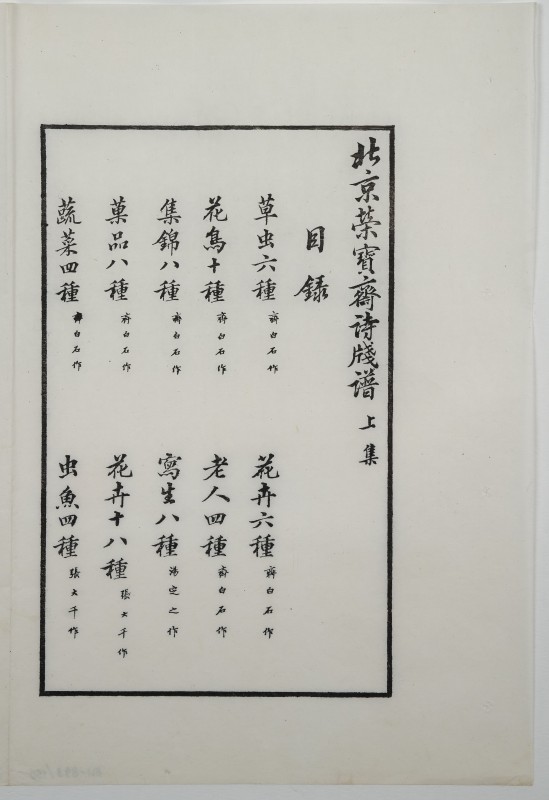 北京榮寶齋詩牋谱 上集
目録
草虫六種 齊白石作
花卉六種 齊白石作
花鳥十種 齊白石作
老人四種 齊白石作
集錦八種 齊白石作
寫生八種 湯定之作
菓品八種 齊白石作
花卉十八種 張大千作
蔬菜四種 齊白石作
虫魚四種 張大千作